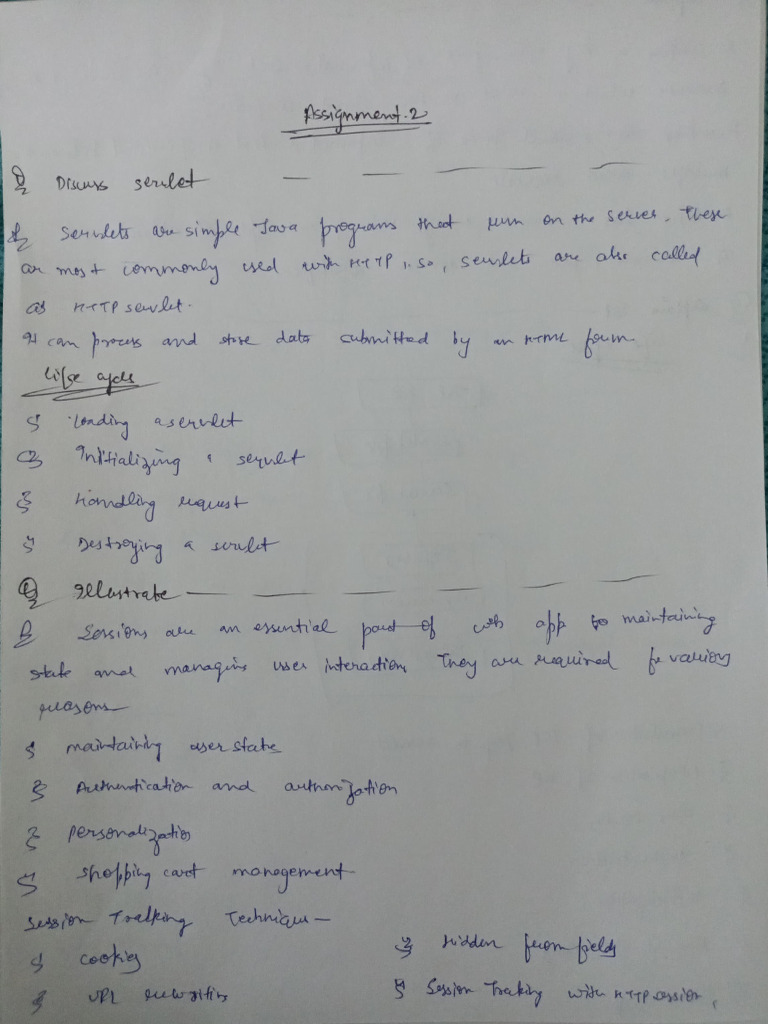 Assignment.2
Q Discuss servlet — — — — —
A Servlets are simple Java programs that run on the server. These
are most commonly used with HTTP. so, servlets are also called
as HTTP servlet.
It can process and store data submitted by an HTML form
Life cycle
1) Loading a servlet
2) Initializing a servlet
3) Handling request
4) Destroying a servlet
Q Illustrate — — — — —
A Sessions are an essential part of web app to maintaining
state and managing user interaction, They are required for various
reasons—
1) maintaining user state
2) Authentication and authorization
3) personalization
4) shopping cart management
Session Tracking Technique —
1) cookies
2) URL rewriting
3) Hidden form fields
4) Session Tracking with HTTP session,